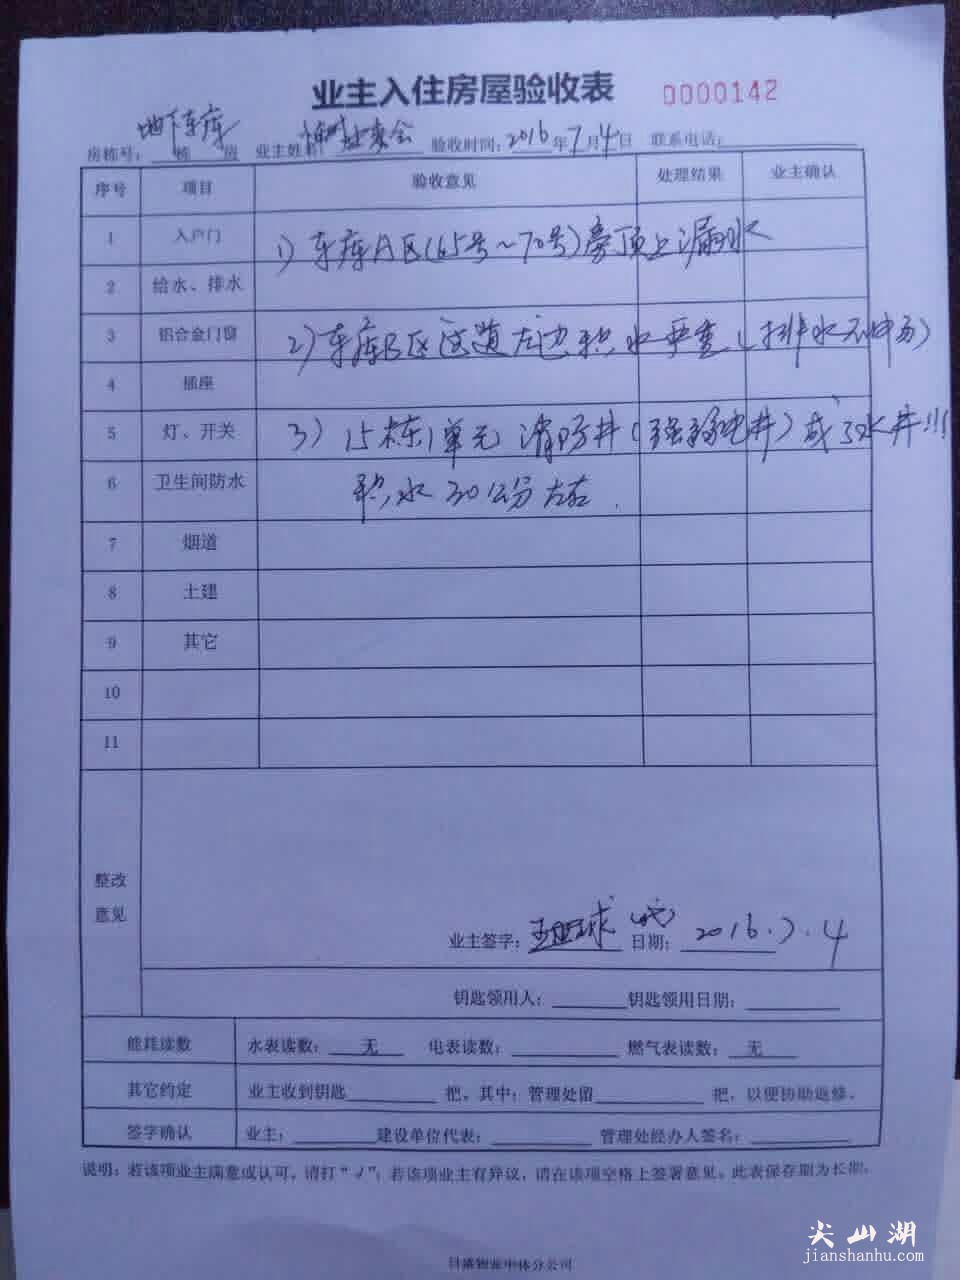 业主入住房屋验收表 0000142
地下车库
房栋号: 栋 房 业主姓名: 临时业委会 验收时间: 2016年7月4日 联系电话:
序号 项目 验收意见 处理结果 业主确认
1 入户门
1) 车库A区(65号~70号)旁顶上漏水
2 给水、排水
3 铝合金门窗
2) 车库B区 道左边积水严重(排水不 )
4 插座
5 灯、开关
3) 15栋1单元 消防井(强弱电井)成了水井!!!
6 卫生间防水
积水30公分左右.
7 烟道
8 土建
9 其它
10
11
整改
意见
业主签字: 日期: 2016.7.4
钥匙领用人: 钥匙领用日期:
能耗读数 水表读数: 无 电表读数: 燃气表读数: 无
其它约定 业主收到钥匙 把,其中:管理处留 把,以便协助返修。
签字确认 业主: 建设单位代表: 管理处经办人签名:
说明:若该项业主满意或认可,请打“√”;若该项业主有异议,请在该项空格上签署意见。此表保存期为长期。
尖山湖
jianshanhu.com